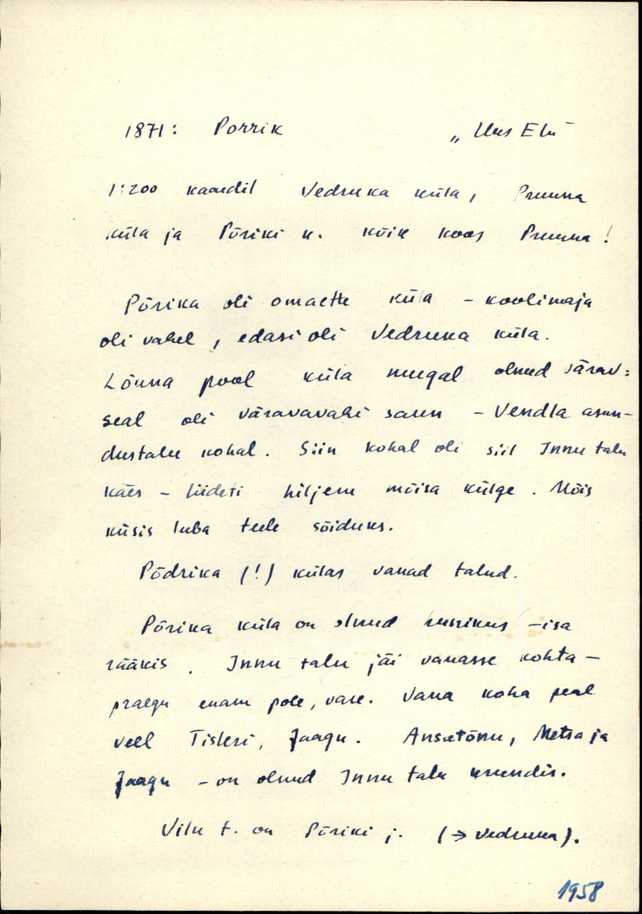 1871: Porrik „Uus Elu"
1:200 kaardil Vedruka küla, Pruuna
küla ja Põriki k. kõik koos Pruuna!
Põrika oli omaette küla – koolimaja
oli vahel, edasi oli Vedruka küla.
Lõuna pool küla nurgal olnud värav:
seal oli väravavahi saun – Vendla asun-
dustalu kohal. Siin kohal oli siil Innu talu
käes – liideti hiljem mõisa külge. Mõis
küsis luba teele sõiduks.
Põdrika (!) külas vanad talud.
Põrika küla on olnud – isa
rääkis. Innu talu jäi vanasse kohta –
praegu enam pole, vare. Vana koha peal
veel Tisleri, Jaagu. Ansutõnu, Metsa ja
Jaagu – on olnud Innu talu krundis.
Vilu t. on Põriki j. (→ Vedruka).
1958